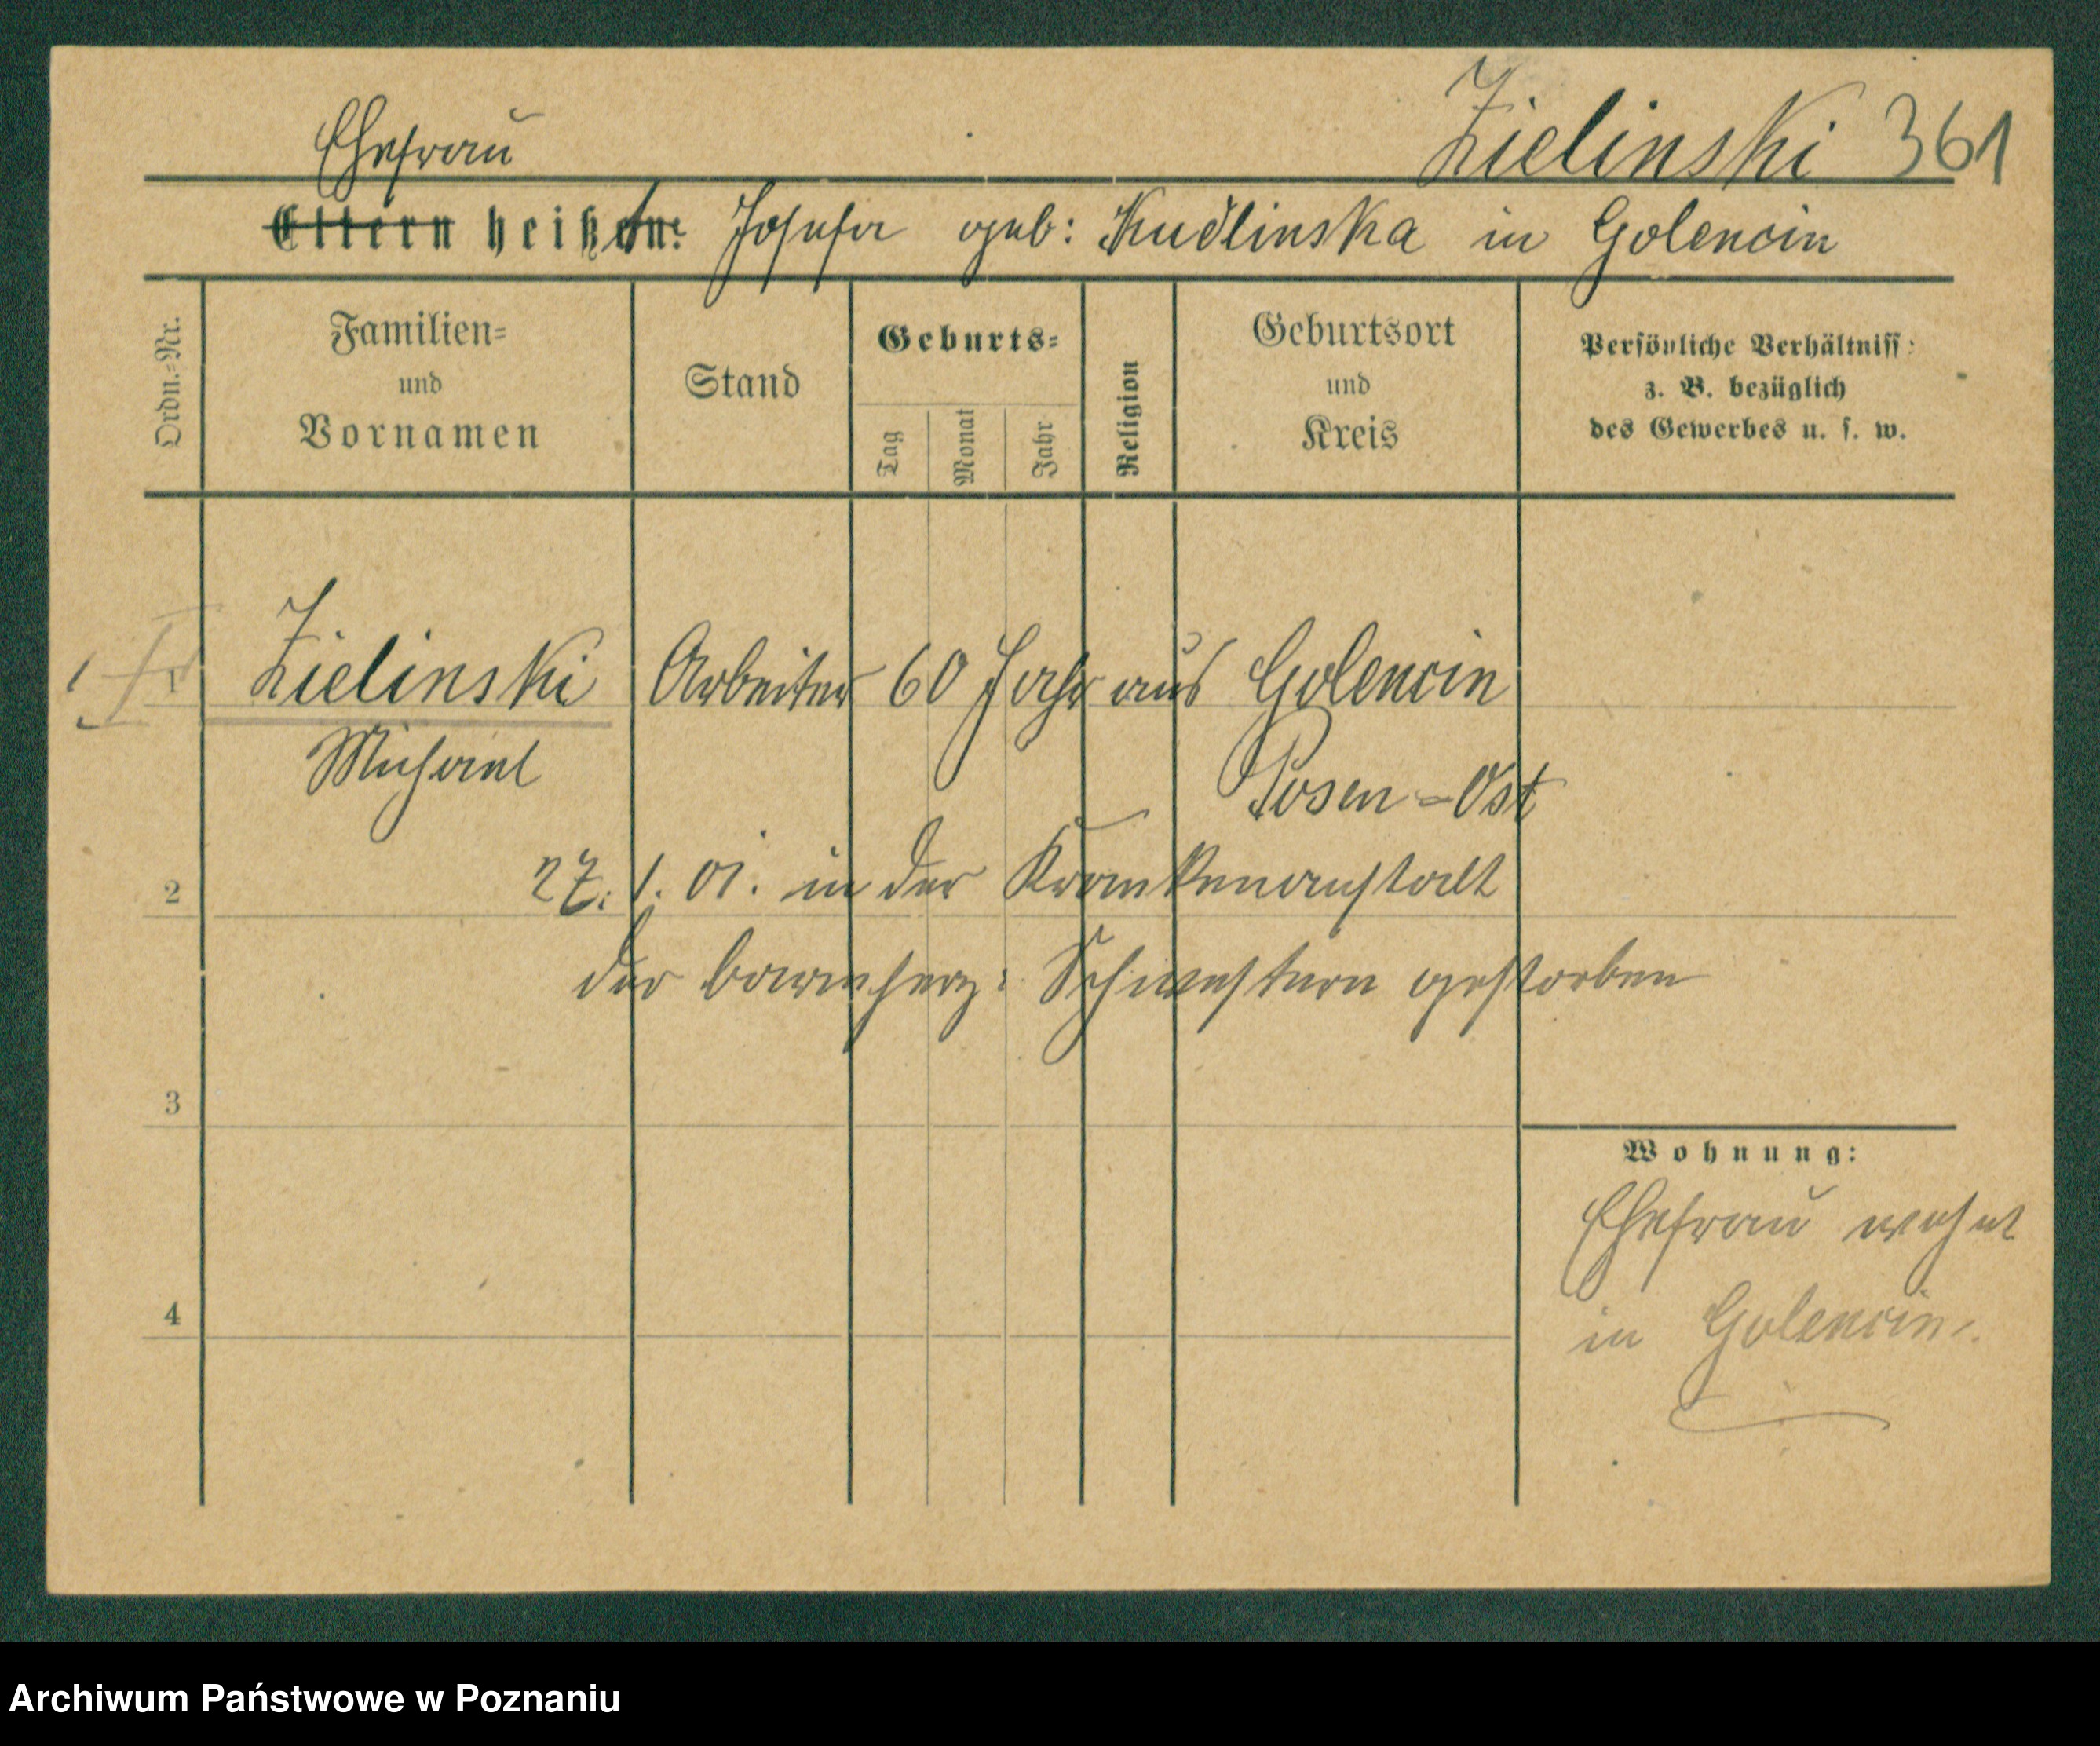 Zielinski 361
Ehefrau
Eltern heißt: Josefa geb: Kudlinska in Golencin
Ordn.-Nr.
Familien-
und
Vornamen
Stand
Geburts-
Tag
Monat
Jahr
Religion
Geburtsort
und
Kreis
Persönliche Verhältniss:
z. B. bezüglich
des Gewerbes u. s. w.
1 Zielinski Arbeiter 60 Jahr aus Golencin
Michael
Posen-Ost
2 27. 1. 01. in der Krankenanstalt
der barmherz: Schwestern gestorben
3
Wohnung:
Ehefrau wohnt
4 in Golencin.
Archiwum Państwowe w Poznaniu